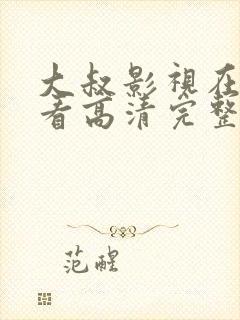 大叔影視在
看高清完整
范醒